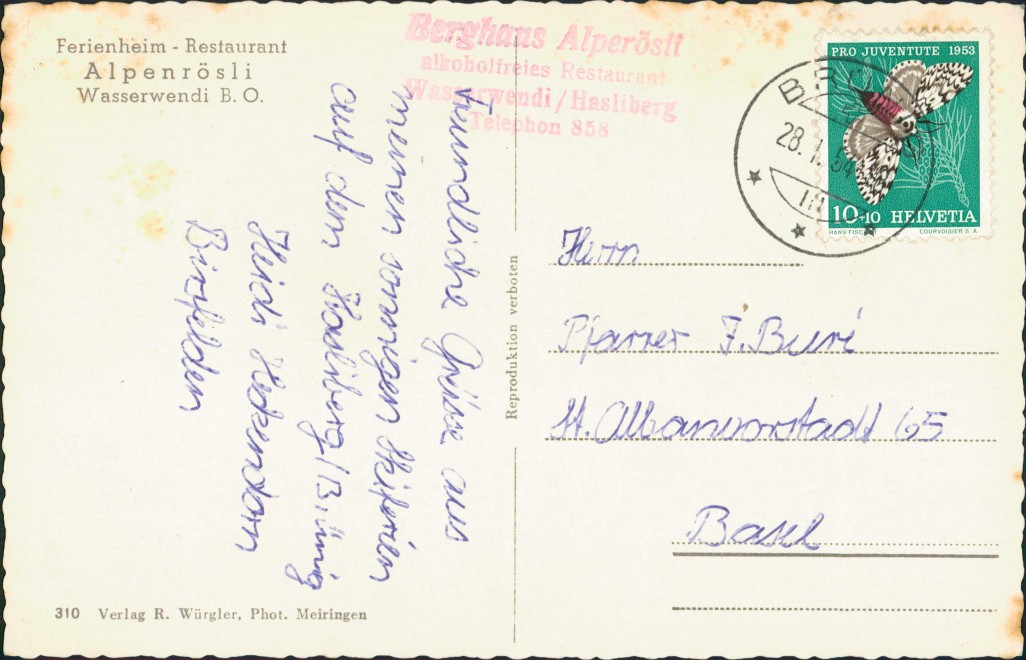 Ferienheim - Restaurant
Alpenrösli
Wasserwendi B. O.
Berghaus Alperösli
alkoholfreies Restaurant
Wasserwendi / Hasliberg
Telephon 858
Freundliche Grüsse aus
meinen sonnigen Skiferien
auf dem Hasliberg/Brünig
Heidi Heckendorn
Birsfelden
310 Verlag R. Würgler, Phot. Meiringen
Reproduktion verboten
PRO JUVENTUTE 1953
10+10 HELVETIA
COURVOISIER S. A.
28. 1. 54
Herrn
Pfarrer J. Buri
St. Albanvorstadt 65
Basel